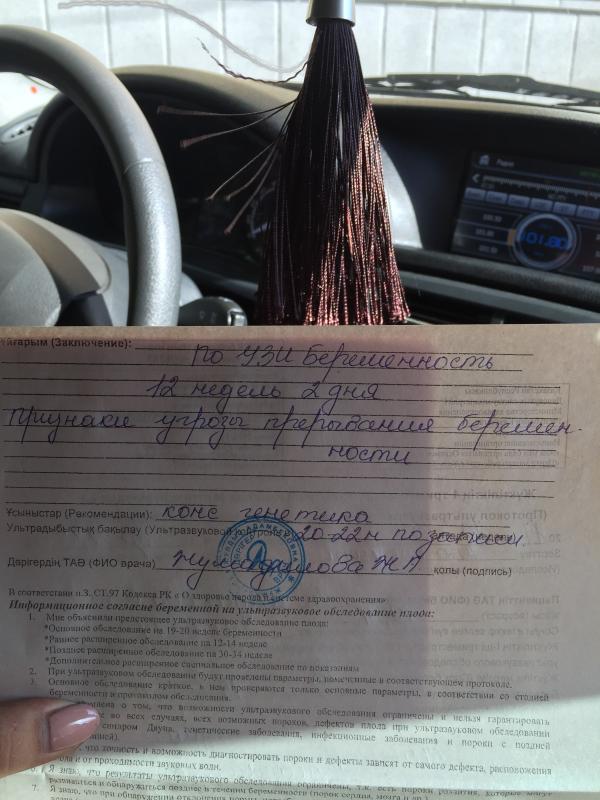 101.80
Тұжырым (Заключение):
По УЗИ беременность
12 недель 2 дня
признаки угрозы прерывания беремен-
ности
Ұсыныстар (Рекомендации): конс генетика
Ультрадыбыстық бақылау (Ультразвуковой контроль) 20-22н
Дәрігердің ТАӘ (ФИО врача) қолы (подпись)
В соответствии п.3. СТ.97 Кодекса РК « О здоровье народа и системе здравоохранения»
Информационное согласие беременной на ультразвуковое обследование плода:
1. Мне объяснили предстоящее ультразвуковое обследование плода:
*Основное обследование на 19-20 неделе беременности
*Раннее расширенное обследование на 12-14 неделе
*Позднее расширенное обследование на 30-34 неделе
*Дополнительное расширенное специальное обследование по показаниям
2. При ультразвуковом обследовании будут проведены параметры, помеченные в соответствующем протоколе.
3. Основное обследование краткое, в нем проверяются только основные параметры, в соответствии со стадией
беременности и протоколом обследования.
о том, что возможности ультразвукового обследования ограничены и нельзя гарантировать
во всех случаях, всех возможных пороков, дефектов плода при ультразвуковом обследовании
Дауна, генетические заболевания, инфекционные заболевания и пороки с поздней
что точность и возможность диагностировать пороки и дефекты зависят от самого дефекта, расположения
и от проходимости звуковых волн.
6. Я знаю, что результаты ультразвукового обследования ограничены, т.к. есть пороки развития, которые могут
развиваться и обнаружаться позднее в течении беременности
7. Я знаю, что при обнаружении отклонения